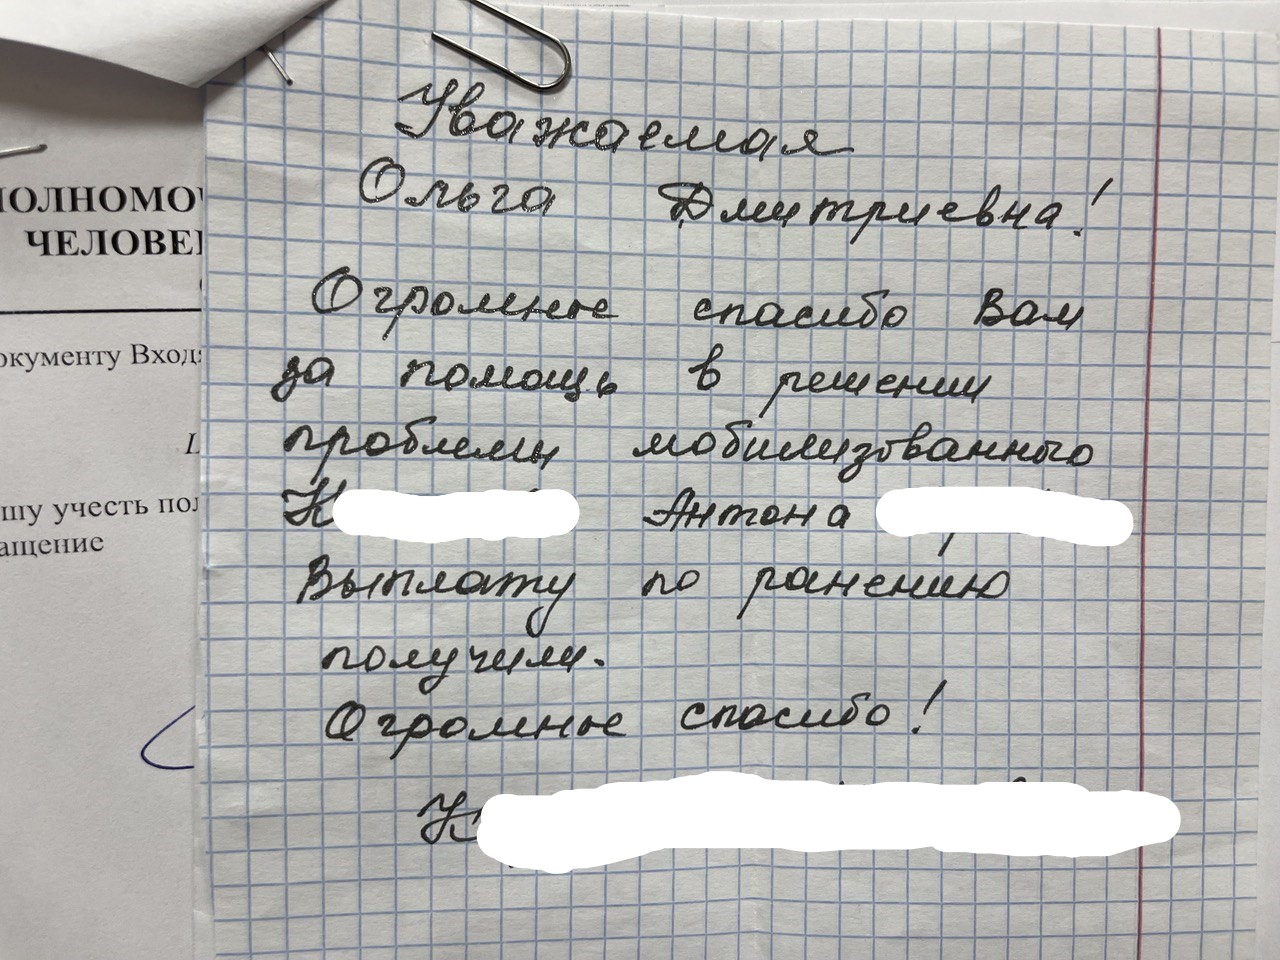 ПОЛНОМО
ЧЕЛОВЕ
окументу Вход
шу учесть пол
ащение
Уважаемая
Ольга Дмитриевна!
Огромное спасибо Вам
за помощь в решении
проблемы мобилизованного
К Антона
Выплату по ранению
получили.
Огромное спасибо!
К